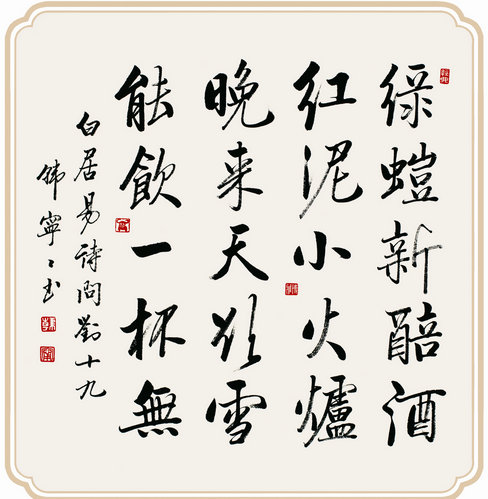 綠螘新醅酒
紅泥小火爐
晚来天欲雪
能飲一杯無
白居易詩問劉十九
韩寧〻书